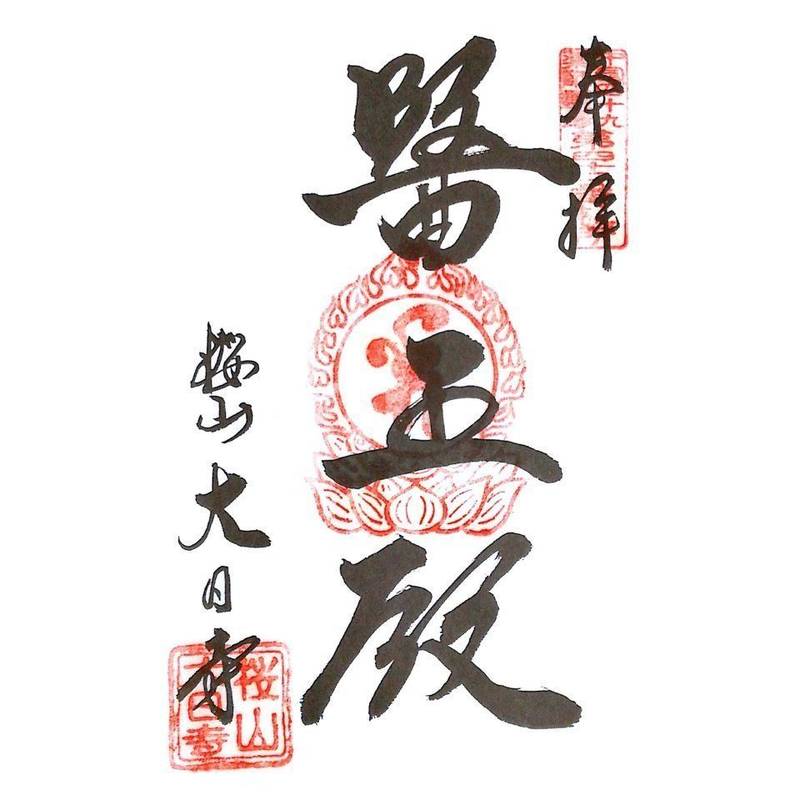 奉拝
醫王殿
桜山 大日寺
桜山
大日寺